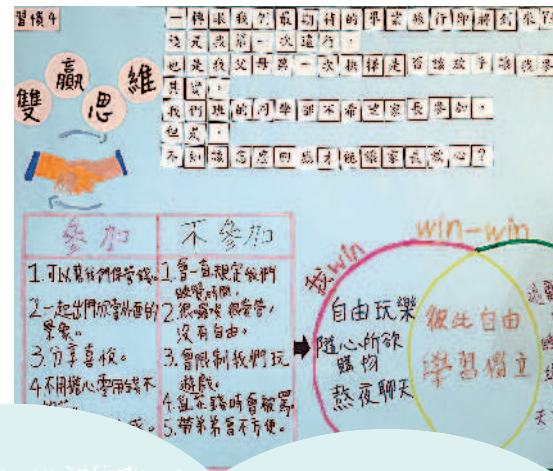 習慣4
雙贏思維
一轉眼我們最期待的畢業旅行即將到來了
這是我第一次遠行,
也是我父母第一次抉擇是否該放手讓我參
其實,
我們班的同學都不希望家長參加,
但是,
不知該怎麼回應才能讓家長放心?
參加
1.可以幫我們保管錢。
2.一起出門欣賞外面的景象。
3.分享喜悅。
4.不用擔心零用錢不
不參加
1.會一直規定我們睡覺時間。
2.很囉嗦 很愛管,沒有自由。
3.會限制我們玩遊戲。
4.亂花錢時會被罵。
5.帶弟弟會不方便。
我win
自由玩樂
隨心所欲
購物
熬夜聊天
win-win
彼此自由
學習獨立